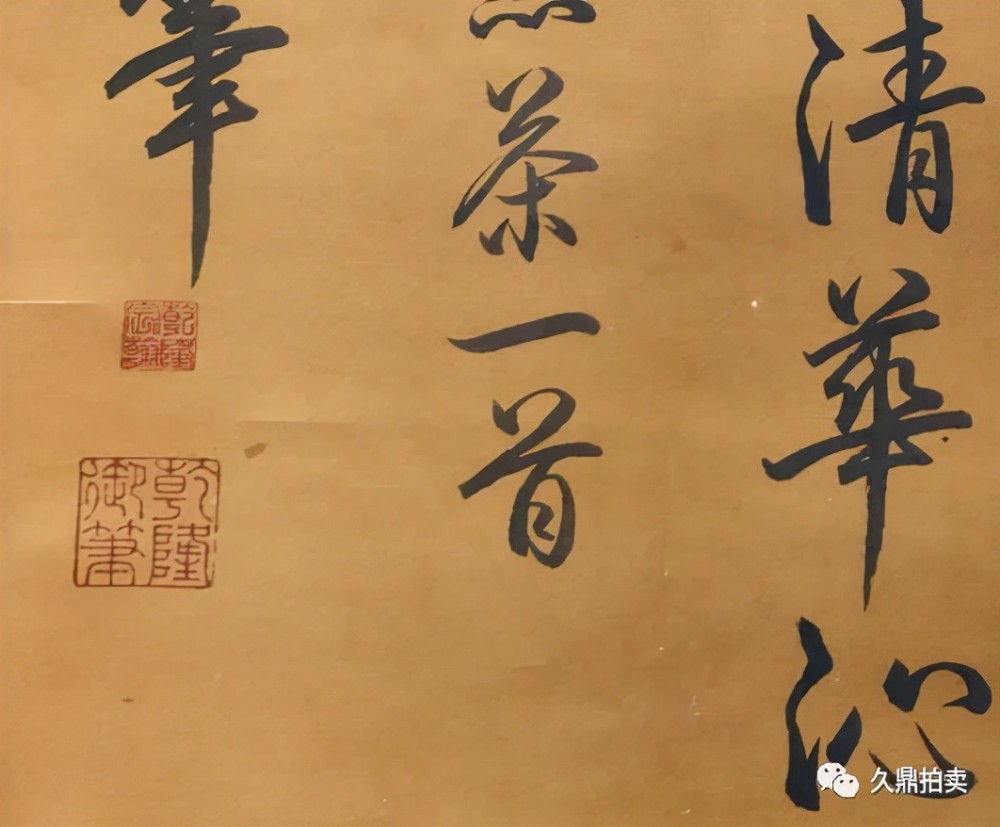 清華沁
茶一首
筆
乾隆
宸翰
乾隆
御筆
久鼎拍卖